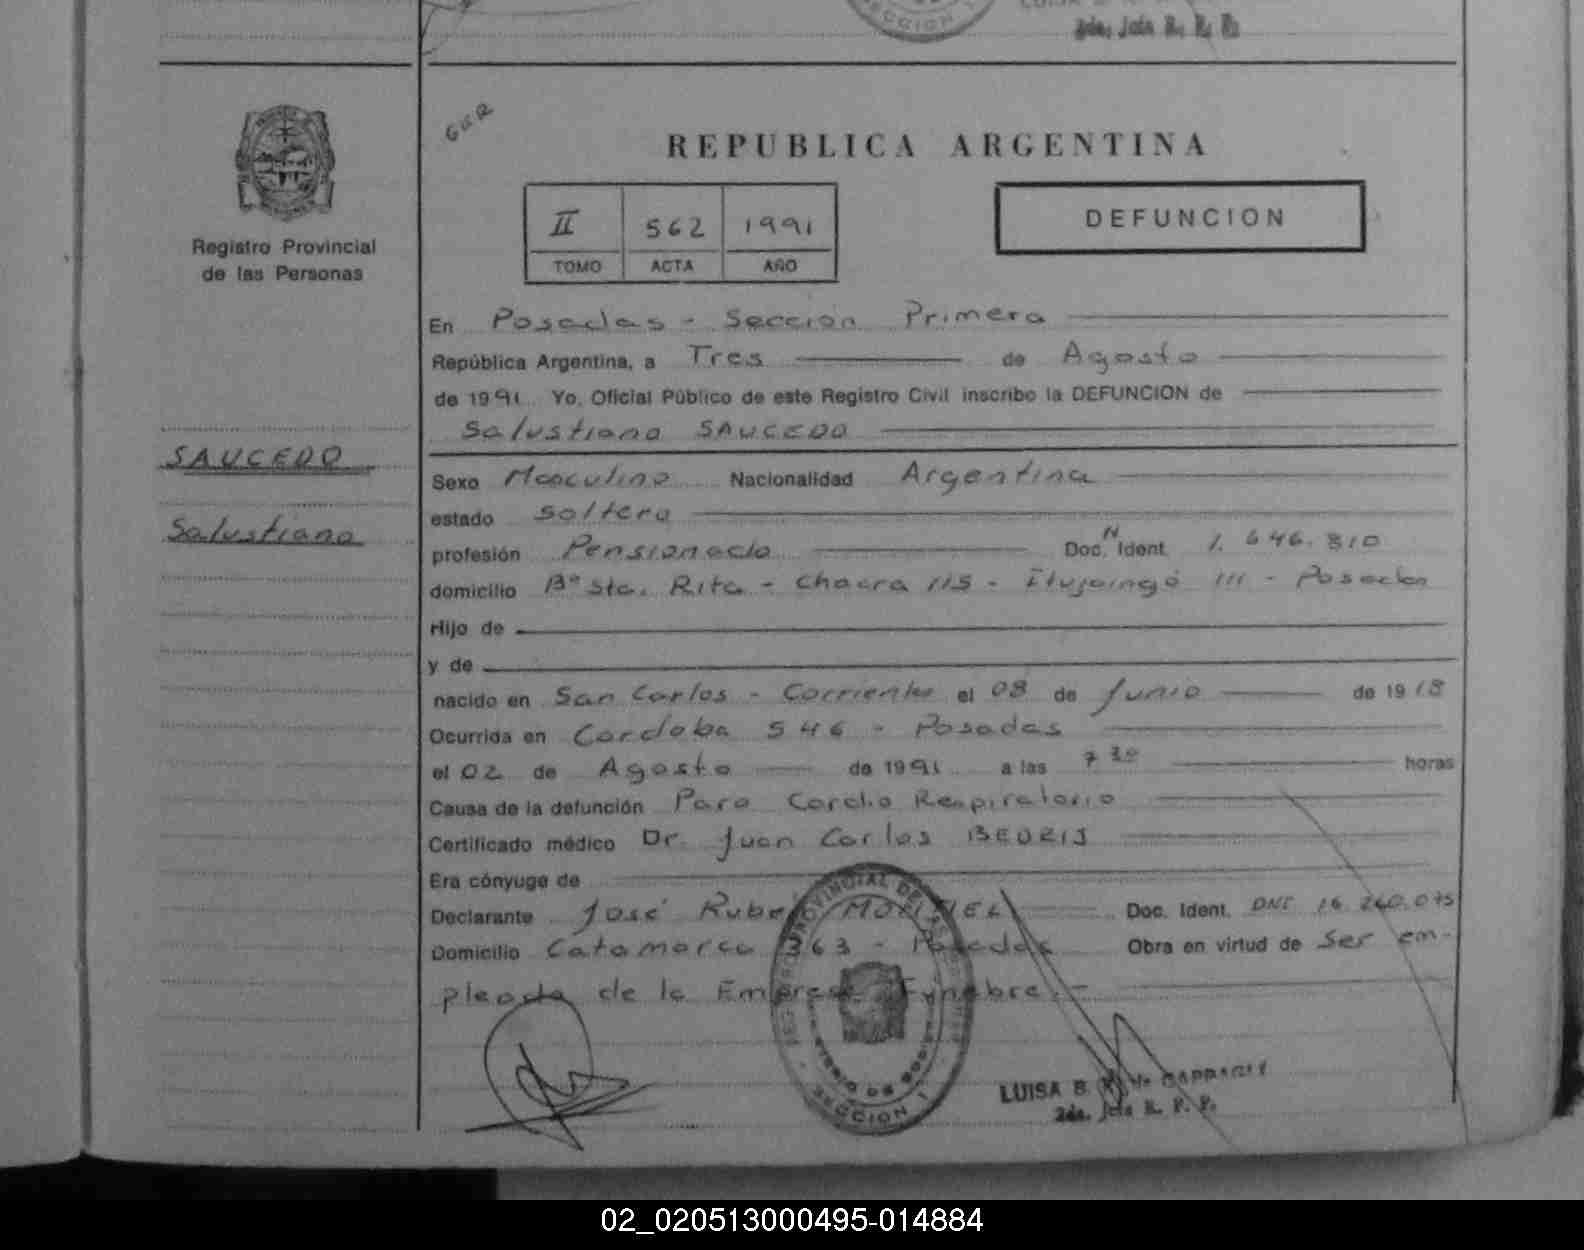 SECCION 1
2da. Jefa R. P. P.
Registro Provincial
de las Personas
GER
REPUBLICA ARGENTINA
II 562 1991
TOMO ACTA AÑO
DEFUNCION
En Posadas - Sección Primera
República Argentina, a Tres de Agosto
de 1991 Yo, Oficial Público de este Registro Civil inscribo la DEFUNCION de
Salustiano SAUCEDO
SAUCEDO
Salustiano
Sexo Masculino Nacionalidad Argentina
estado Soltero
profesión Pensionado Doc. N Ident. 1.646.810
domicilio Bº Sta. Rita - Chacra 115 - Itujaingó 111 - Posadas
Hijo de
y de
nacido en San Carlos - Corrientes el 08 de Junio de 1918
Ocurrida en Cordoba 546 - Posadas
el 02 de Agosto de 1991 a las 7 30 horas
Causa de la defunción Paro Cardio Respiratorio
Certificado médico Dr. Juan Carlos
Era cónyuge de
Declarante José Rubén Doc. Ident. DNI 16.260.075
Domicilio Catamarca 363 - Posadas Obra en virtud de ser em-
pleado de la Empresa Fúnebre.-
REGISTRO PROVINCIAL DE LAS PERSONAS
SECCION 1
LUISA B
2da. Jefa R. P. P.
02_020513000495-014884